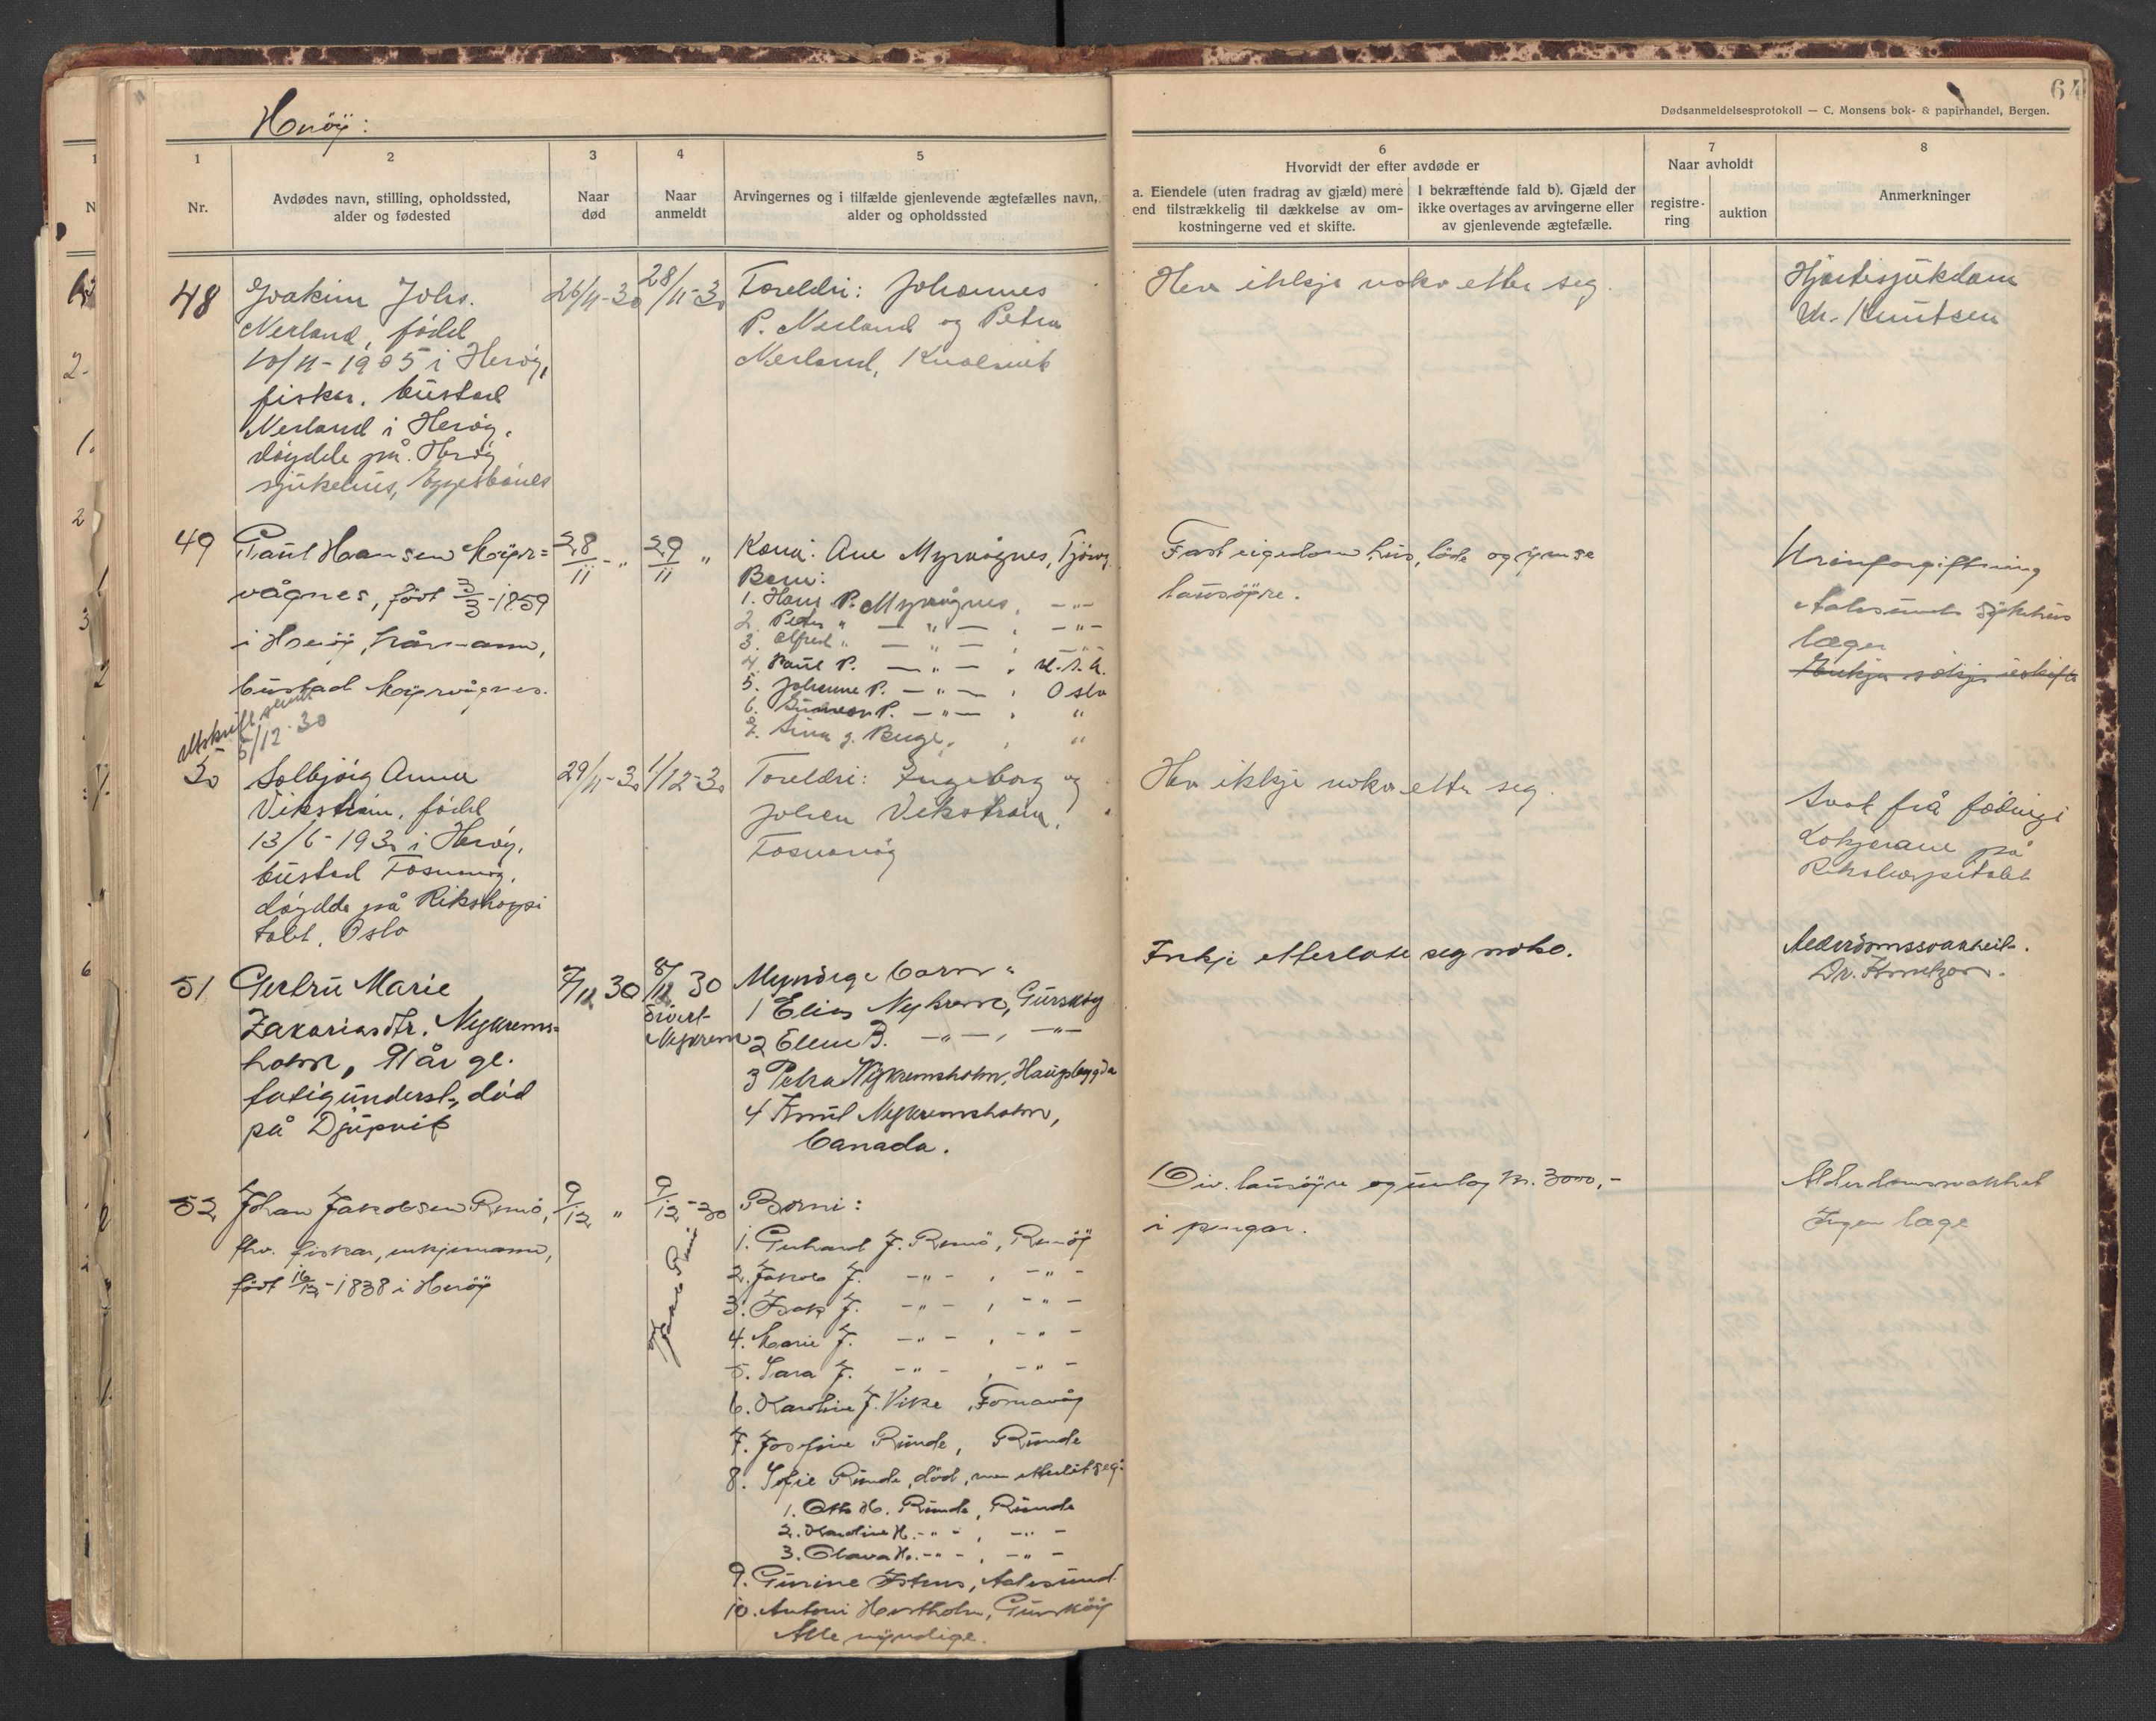 Herøy:
64
Dødsanmeldelsesprotokoll — C. Monsens bok- & papirhandel, Bergen.
1
Nr.
2
Avdødes navn, stilling, opholdssted,
alder og fødested
3
Naar
død
4
Naar
anmeldt
5
Arvingernes og i tilfælde gjenlevende ægtefælles navn,
alder og opholdssted
6
Hvorvidt der efter avdøde er
a. Eiendele (uten fradrag av gjæld) mere
end tilstrækkelig til dækkelse av om-
kostningerne ved et skifte.
I bekræftende fald b). Gjæld der
ikke overtages av arvingerne eller
av gjenlevende ægtefælle.
7
Naar avholdt
registre-
ring
auktion
8
Anmerkninger
48
Joakim Johs.
Nerland, fødd
10/11-1905 i Herøy,
fisker, bustad
Nerland i Herøy,
døydde på Herøy
sjukehus, Eggesbønes
26/11-30
28/11-30
Foreldri: Johannes
P. Nerland og Petra
Nerland, Kvalsvik
Hev ikkje noko etter seg.
Hjartesjukdom
Knutsen
49
Paul Hansen Myr=
vågnes, født 3/3-1859
i Herøy, kårmann,
bustad Myrvågnes.
28/11 - "
29/11 "
Kona: Ane Myrvågnes, Tjørvåg
Born:
1. Hans P. Myrvågnes, -"-
2. Peter " — " — , -"-
3. Alfred " — " — , -"-
4. Paul P. — " — , U.S.A.
5. Johanne P. — " — , Oslo
6. P. — " — , "
7. g. Berge, , "
Fast eigedom, hus, løde og ymse
lausøyre.
Urinforgiftning
Aalesunds sykehus
læger
Enkja søkje uskifte
Utskrift sendt
5/12-30
50
Solbjørg Anna
Vikstrøm, fødd
13/6-1930 i Herøy,
bustad Fosnavåg,
døydde på Rikshospi
talet, Oslo
29/11-30
1/12-30
Foreldri: Ingeborg og
Johan Vikstrøm,
Fosnavåg
Hev ikkje noko etter seg.
Svak frå fødingi
Lækjarane på
Rikshospitalet
51
Gertru Marie
Zakariasdtr. Nykrems=
holm, 91 år gl.
fatigunderst., død
på Djupvik
7/12 30
8/12 30
Sivert
Nykrem
Myndige barn:
1 Elias Nykrem, Gurskøy
2 Ellen B. -"- , -"-
3 Petra Nykremsholm, Haugsbygda
4 Knut Nykremsholm,
Canada.
Inkje etterlate seg noko.
Alderdomssvakheit.
Dr. Knutzon.
52
Johan Jakobsen Remø,
fhv. fisker, enkjemann,
født 16/12-1838 i Herøy
9/12 "
9/12-30
Remø
Borni:
1. Gerhard J. Remø, Remøy
2. Jakob J. -"- , -"-
3. Isak J. -"- , -"-
4. Marie J. -"- , -"-
5. Sara J. -"- , -"-
6. Karoline J. Vike, Fosnavåg
7. Josefine Runde, Runde
8. Sofie Runde, død, men etterlét seg:
1. Otto H. Runde, Runde
2. Karoline H. -"- , -"-
3. Olava H. -"- , -"-
9. Gurine , Aalesund
10. Antoni Hestholm, Gurskøy
Alle myndige.
Div. lausøyre og innlag kr. 3000,-
i pengar.
Alderdomssvakhet
Ingen læge